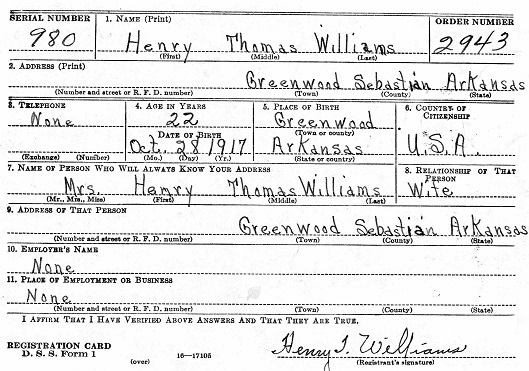 SERIAL NUMBER 1. NAME (Print) ORDER NUMBER
980 Henry Thomas Williams 2943
(First) (Middle) (Last)
2. ADDRESS (Print)
Greenwood Sebastian Arkansas
(Number and street or R. F. D. number) (Town) (County) (State)
3. TELEPHONE 4. AGE IN YEARS 5. PLACE OF BIRTH 6. COUNTRY OF CITIZENSHIP
None 22 Greenwood
DATE OF BIRTH (Town or county)
Oct. 28 1917 Arkansas U.S.A.
(Exchange) (Number) (Mo.) (Day) (Yr.) (State or country)
7. NAME OF PERSON WHO WILL ALWAYS KNOW YOUR ADDRESS 8. RELATIONSHIP OF THAT PERSON
Mrs. Henry Thomas Williams Wife
(Mr., Mrs., Miss) (First) (Middle) (Last)
9. ADDRESS OF THAT PERSON
Greenwood Sebastian Arkansas
(Number and street or R. F. D. number) (Town) (County) (State)
10. EMPLOYER'S NAME
None
11. PLACE OF EMPLOYMENT OR BUSINESS
None
(Number and street or R. F. D. number) (Town) (County) (State)
I AFFIRM THAT I HAVE VERIFIED ABOVE ANSWERS AND THAT THEY ARE TRUE.
REGISTRATION CARD
D. S. S. Form 1 16—17105 Henry T. Williams
(over) (Registrant's signature)